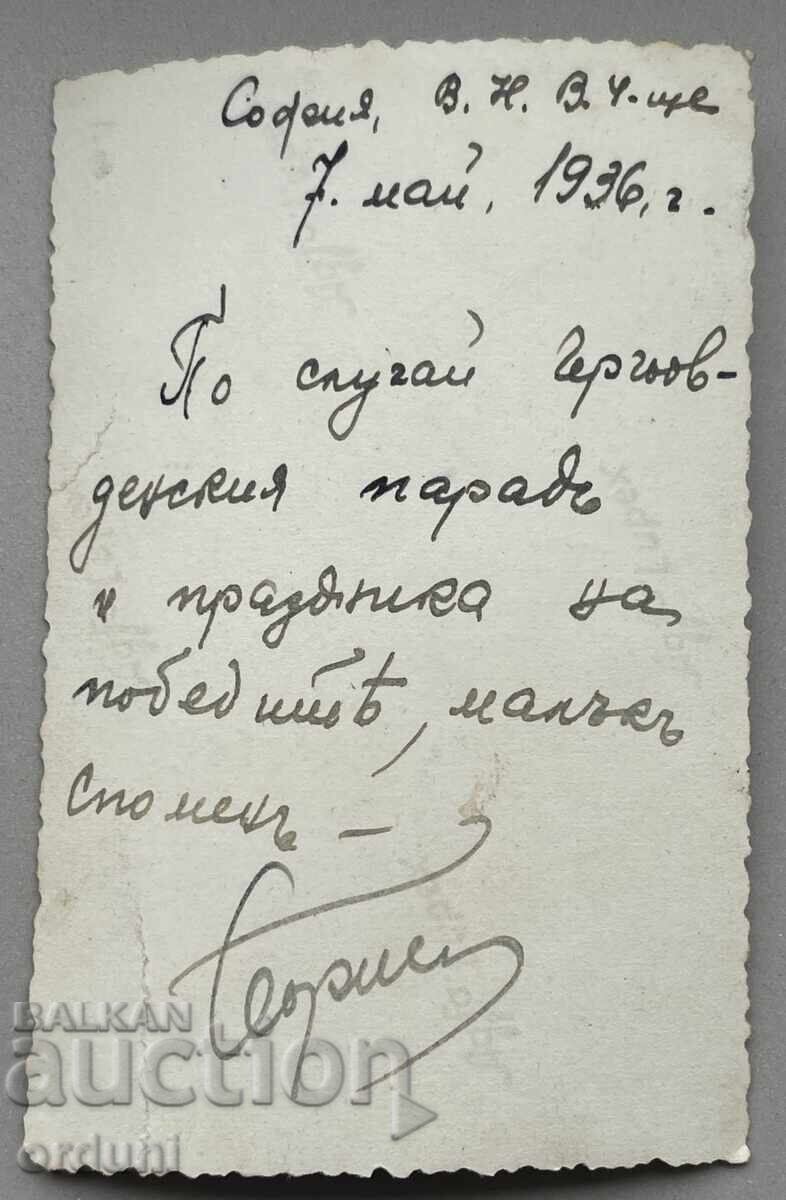 София, В. Н. В. У-ще
7. май, 1936, г.
По случай Гергьов-
денския парадъ
и празника на
победитѣ, малъкъ
споменъ —
BALKAN
auction
orduni